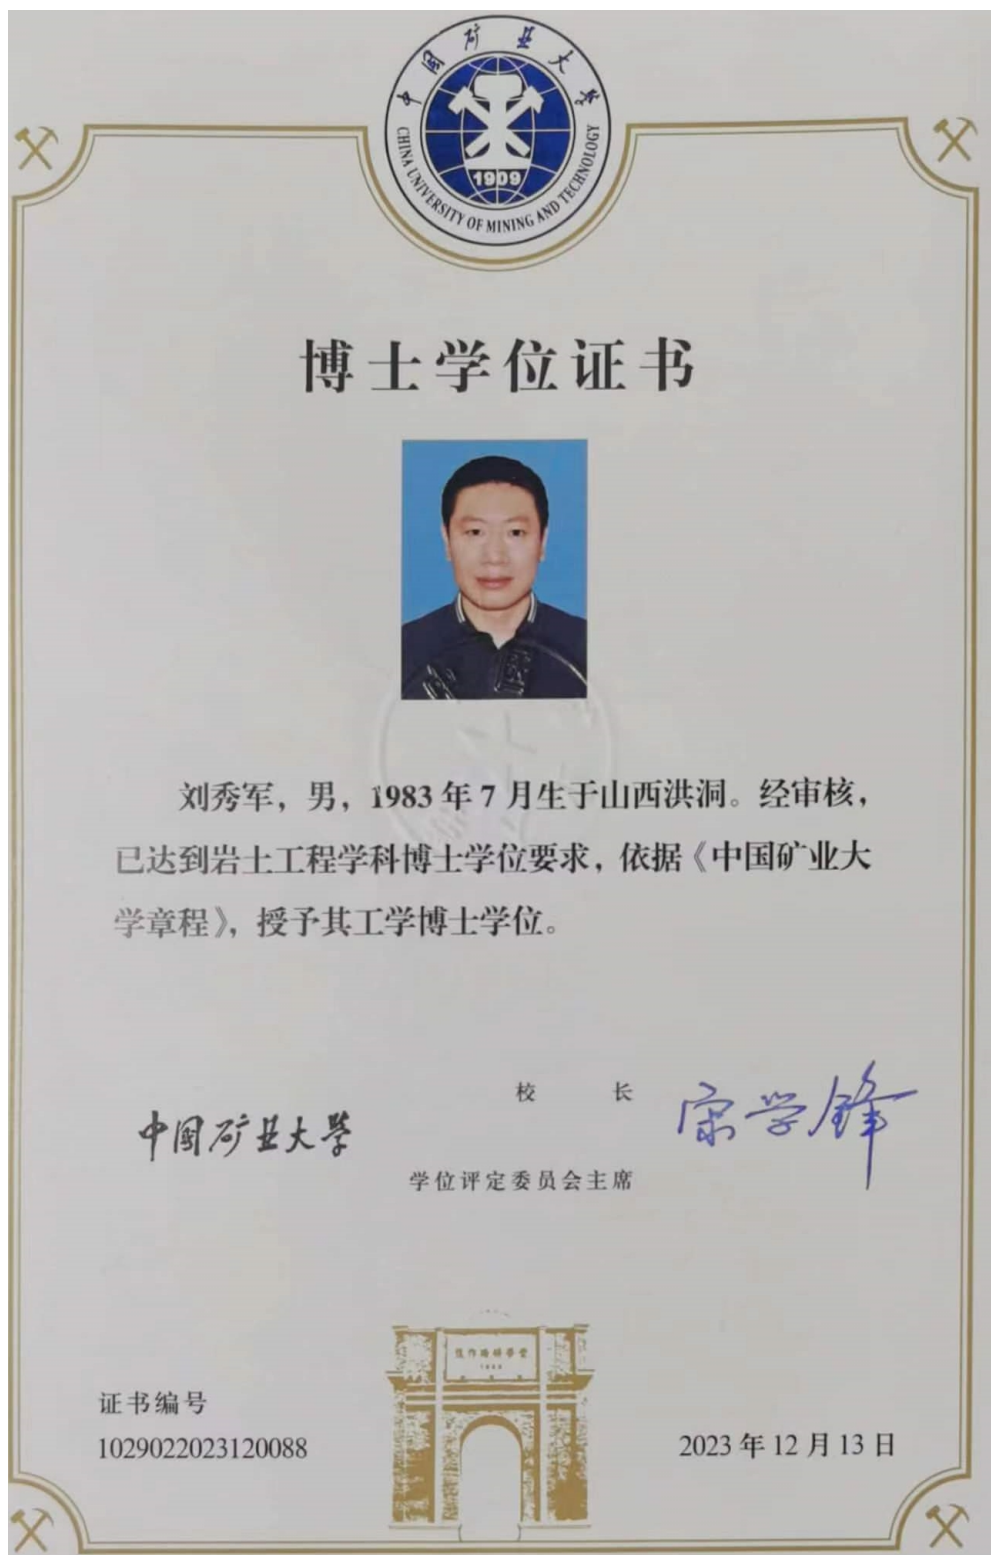 中国矿业大学
CHINA UNIVERSITY OF MINING AND TECHNOLOGY
1909
博士学位证书
刘秀军，男，1983年7月生于山西洪洞。经审核，
已达到岩土工程学科博士学位要求，依据《中国矿业大
学章程》，授予其工学博士学位。
校 长
宋学锋
中国矿业大学
学位评定委员会主席
焦作路矿学堂
1909
证书编号
1029022023120088
2023年12月13日